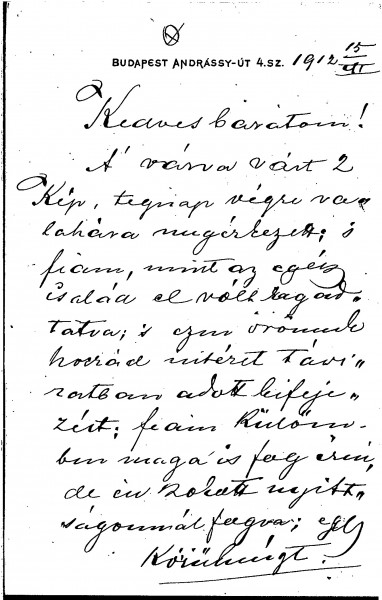 BUDAPEST ANDRÁSSY-ÚT 4. SZ. 1912 15/III
Kedves barátom!
A' várva várt 2
Kép, tegnap végre va„
lahára megérkezett; s
fiam, mint az egész
család el vólt ragad„
tatva; s ezen örömnek
hozzád intézet távi„
ratban adott kifeje„
zést; fiam külöm„
ben maga is fog írni,
de én szokott nyilt„
ságomnál fogva; egy